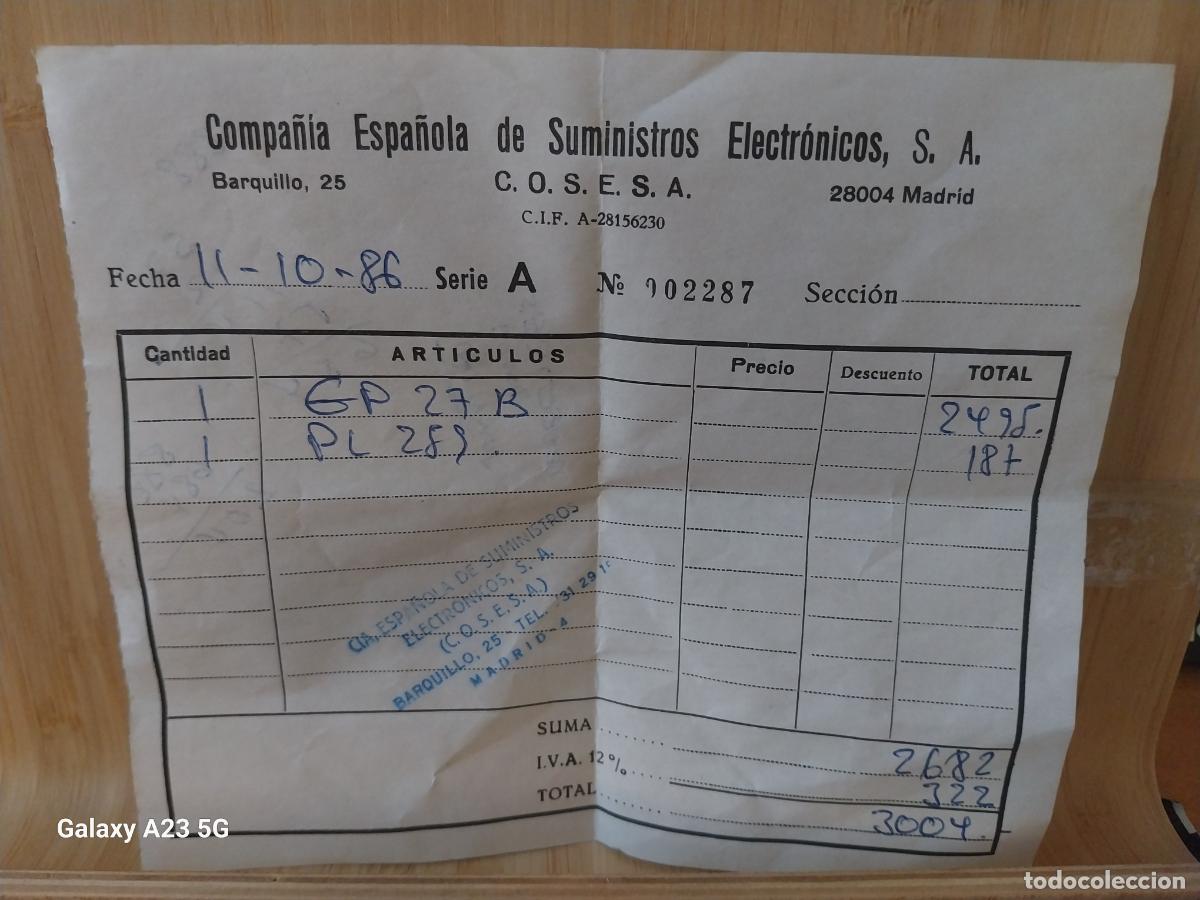 Compañía Española de Suministros Electrónicos, S. A.
Barquillo, 25 C. O. S. E. S. A. 28004 Madrid
C.I.F. A-28156230
Fecha 11-10-86 Serie A Nº 002287 Sección
Cantidad ARTICULOS Precio Descuento TOTAL
1 GP 27 B 2495.
1 PL 289. 187
CIA. ESPAÑOLA DE SUMINISTROS
ELECTRONICOS, S. A.
(C. O. S. E. S. A.)
BARQUILLO, 25 - TEL. 31 29 1
MADRID-4
SUMA 2682
I.V.A. 12% 322
TOTAL 3004.
Galaxy A23 5G
todocoleccion